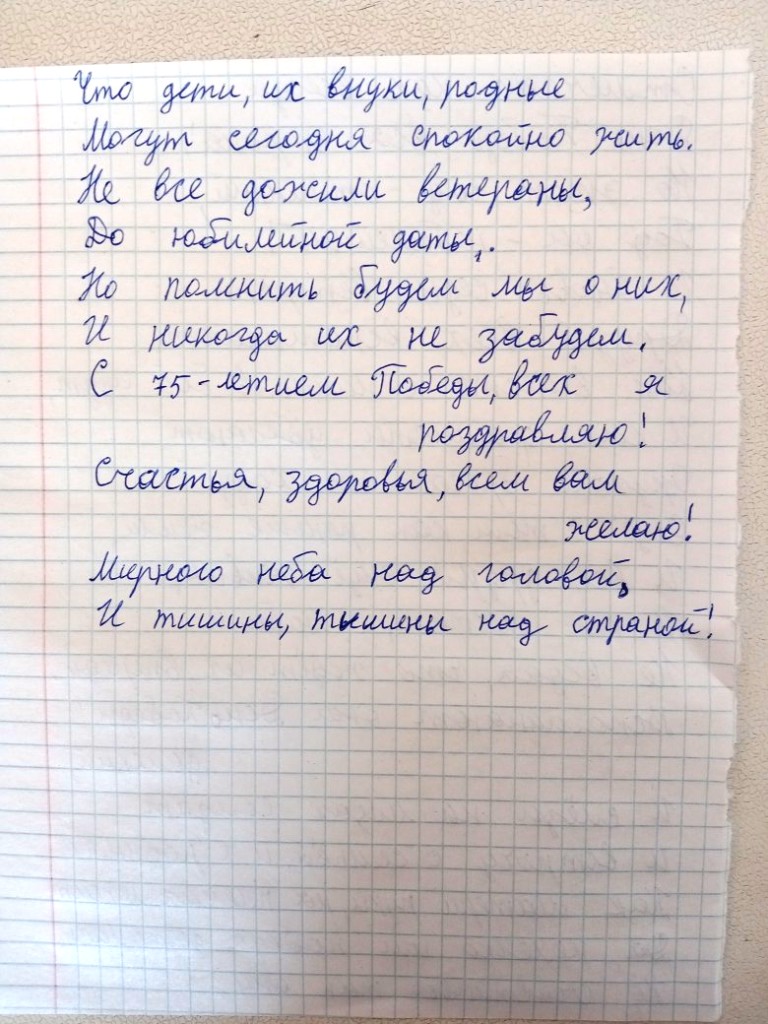 Что дети, их внуки, родные
Могут сегодня спокойно жить.
Не все дожили ветераны,
До юбилейной даты,.
Но помнить будем мы о них,
И никогда их не забудем.
С 75-летием Победы, всех я
роздравляю!
Счастья, здоровья, всем вам
желаю!
Мирного неба над головой,
И тишины, тышины над страной!